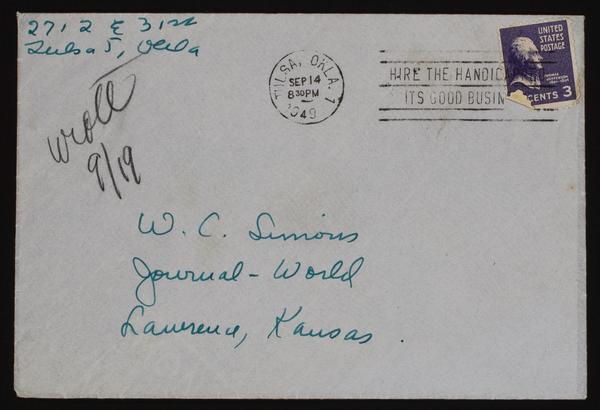 2712 E 31st
Tulsa 5, Okla
wrote
9/19
TULSA, OKLA. 1
SEP 14
8 30 PM
1949
HIRE THE HANDICAP
ITS GOOD BUSIN
UNITED
STATES
POSTAGE
THOMAS
JEFFERSON
CENTS 3
W. C. Simons
Journal-World
Lawrence, Kansas.